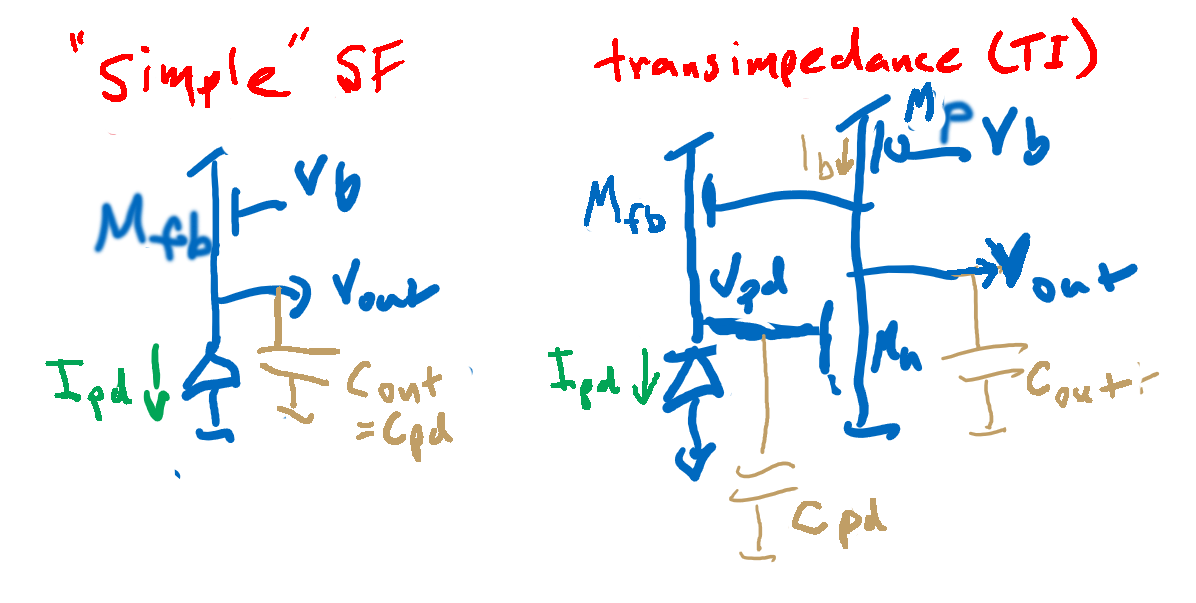 "Simple" SF
Mfb
Vb
Vout
Ipd
Cout
=Cpd
transimpedance (TI)
Mp
Ib
Vb
Mfb
Vpd
Vout
Mn
Ipd
Cout
Cpd